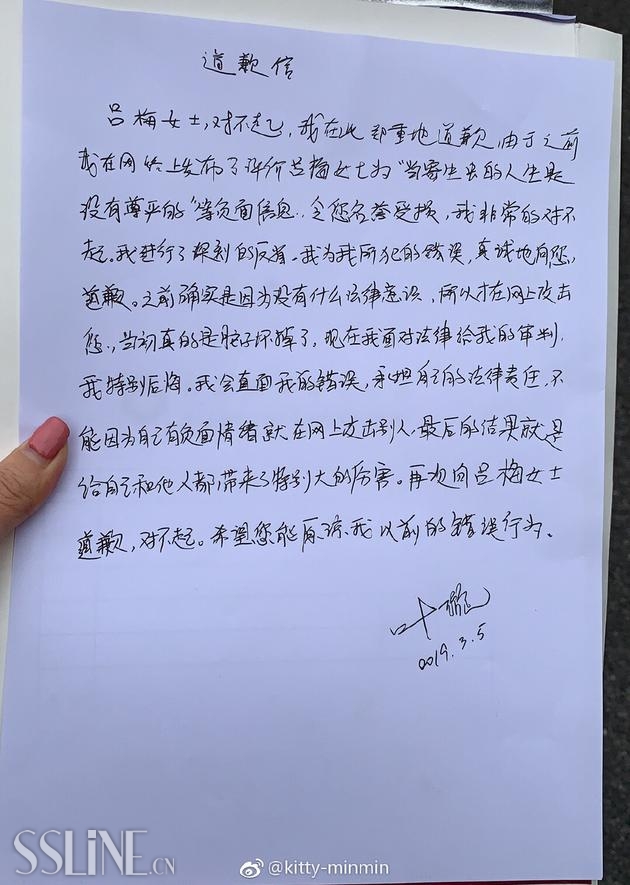 道歉信
吕梅女士,对不起,我在此郑重地道歉,由于之前
我在网络上发布了评价吕梅女士为“当寄生虫的人生是
没有尊严的”等负面信息..令您名誉受损,我非常的对不
起。我进行了深刻的反省。我为我所犯的错误,真诚地向您,
道歉。之前确实是因为没有什么法律意识,所以才在网上攻击
您.,当初真的是脑子坏掉了,现在我面对法律给我的审判,
我特别后悔。我会直面我的错误,承担自己的法律责任,不
能因为自己有负面情绪就在网上攻击别人,最后的结果就是
给自己和他人都带来了特别大的伤害。再次向吕梅女士
道歉,对不起。希望您能原谅我以前的错误行为。
叶璇
2019.3.5
SSLINE.CN
@kitty-minmin